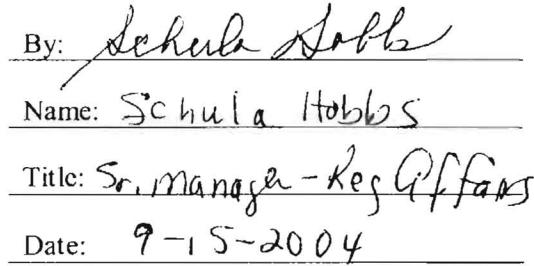 By: Schula Hobbs
Name: Schula Hobbs
Title: Sr. Manager - Reg Affairs
Date: 9-15-2004